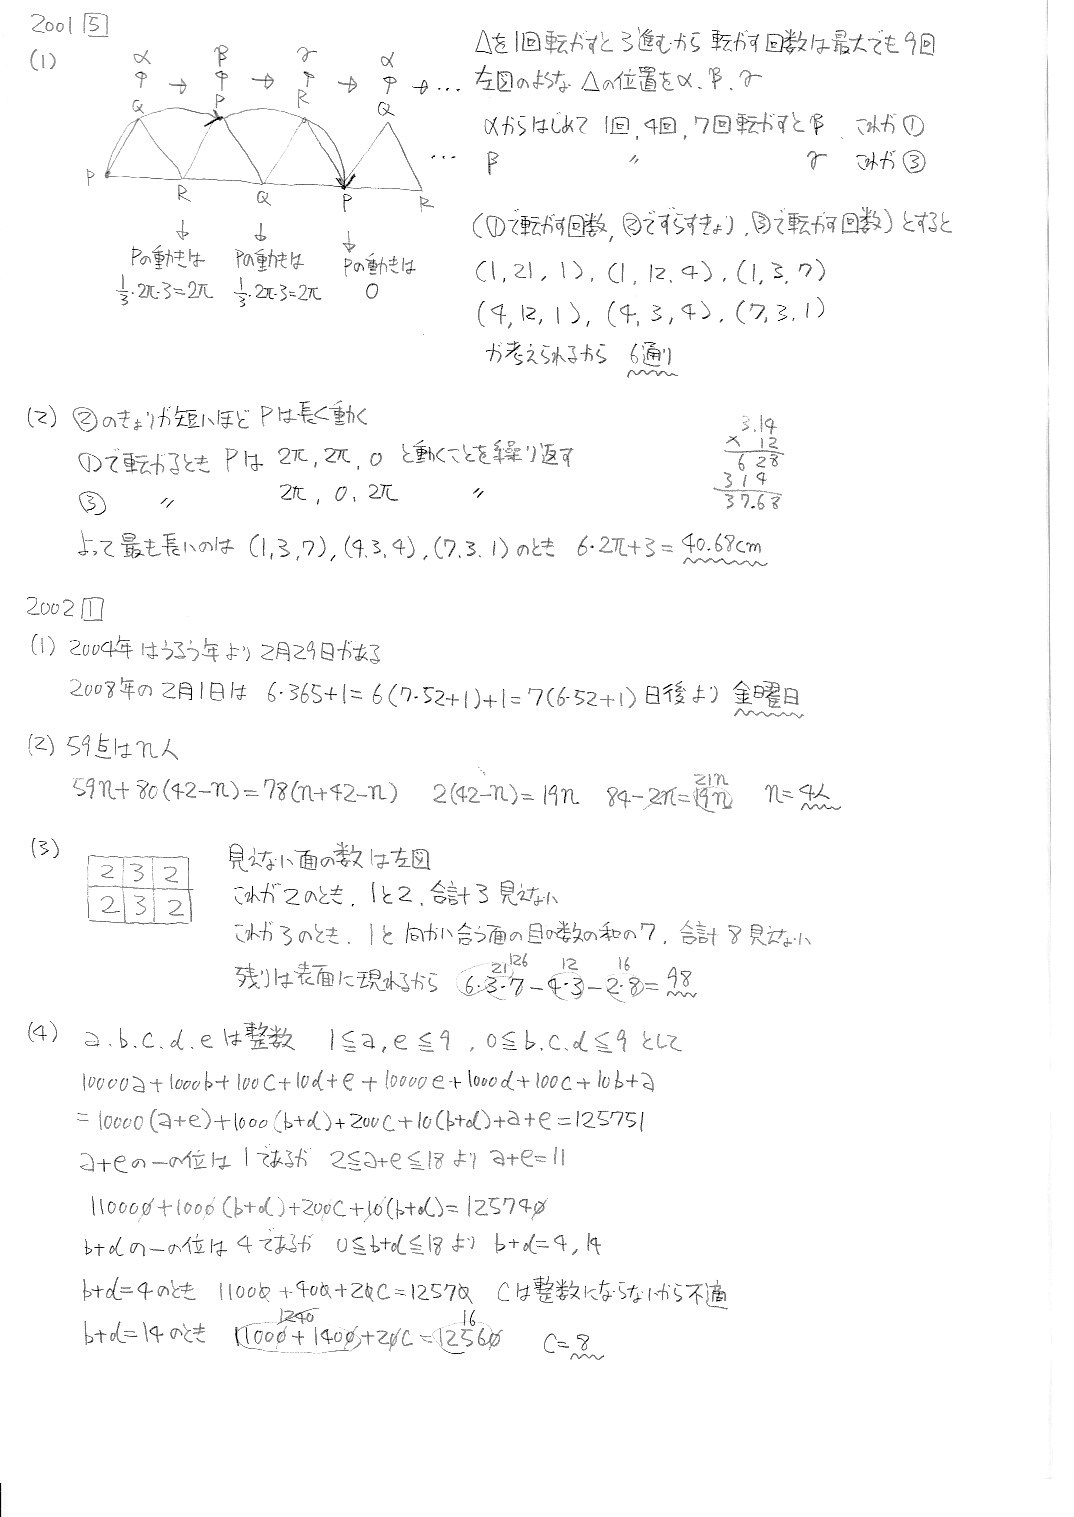 2001 5
(1)
α β γ α
Q P R Q
P R Q P R
Pの動きは Pの動きは Pの動きは
1/3・2π・3=2π 1/3・2π・3=2π 0
△を1回転がすと3進むから 転がす回数は最大でも9回
左図のような△の位置をα、β、γ
αからはじめて 1回,4回,7回転がすとβ これが①
β 〃 γ これが③
(①で転がす回数,②でずらすきょり,③で転がす回数)とすると
(1,21,1),(1,12,4),(1,3,7)
(4,12,1),(4,3,4),(7,3,1)
が考えられるから 6通り
(2) ②のきょりが短いほどPは長く動く
①で転がるとき Pは 2π,2π,0 と動くことを繰り返す
③ 〃 2π,0,2π 〃
3.14
× 12
6 28
31 4
37.68
よって最も長いのは (1,3,7),(4,3,4),(7,3,1)のとき 6・2π+3=40.68cm
2002 1
(1) 2004年はうるう年より2月29日がある
2008年の2月1日は 6・365+1=6(7・52+1)+1=7(6・52+1)日後より 金曜日
(2) 59点はn人
59n+80(42-n)=78(n+42-n) 2(42-n)=19n 84-2n=19n 21n n=4人
(3)
2 3 2
2 3 2
見えない面の数は左図
これが2のとき、1と2、合計3見えない
これが3のとき、1と向かい合う面の目の数の和の7、合計8見えない
21 126 12 16
残りは表面に現れるから 6・3・7-4・3-2・8=98
(4) a.b.c.d.eは整数 1≦a,e≦9 ,0≦b.c.d≦9 として
10000a+1000b+100c+10d+e+10000e+1000d+100c+10b+a
=10000(a+e)+1000(b+d)+200c+10(b+d)+a+e=125751
a+eの一の位は1であるが 2≦a+e≦18より a+e=11
110000+1000(b+d)+200c+10(b+d)=125740
b+dの一の位は4であるが 0≦b+d≦18より b+d=4,14
b+d=4のとき 11000+400+20c=12570 cは整数にならないから不適
1240 16
b+d=14のとき 11000+1400+20c=12560 c=8